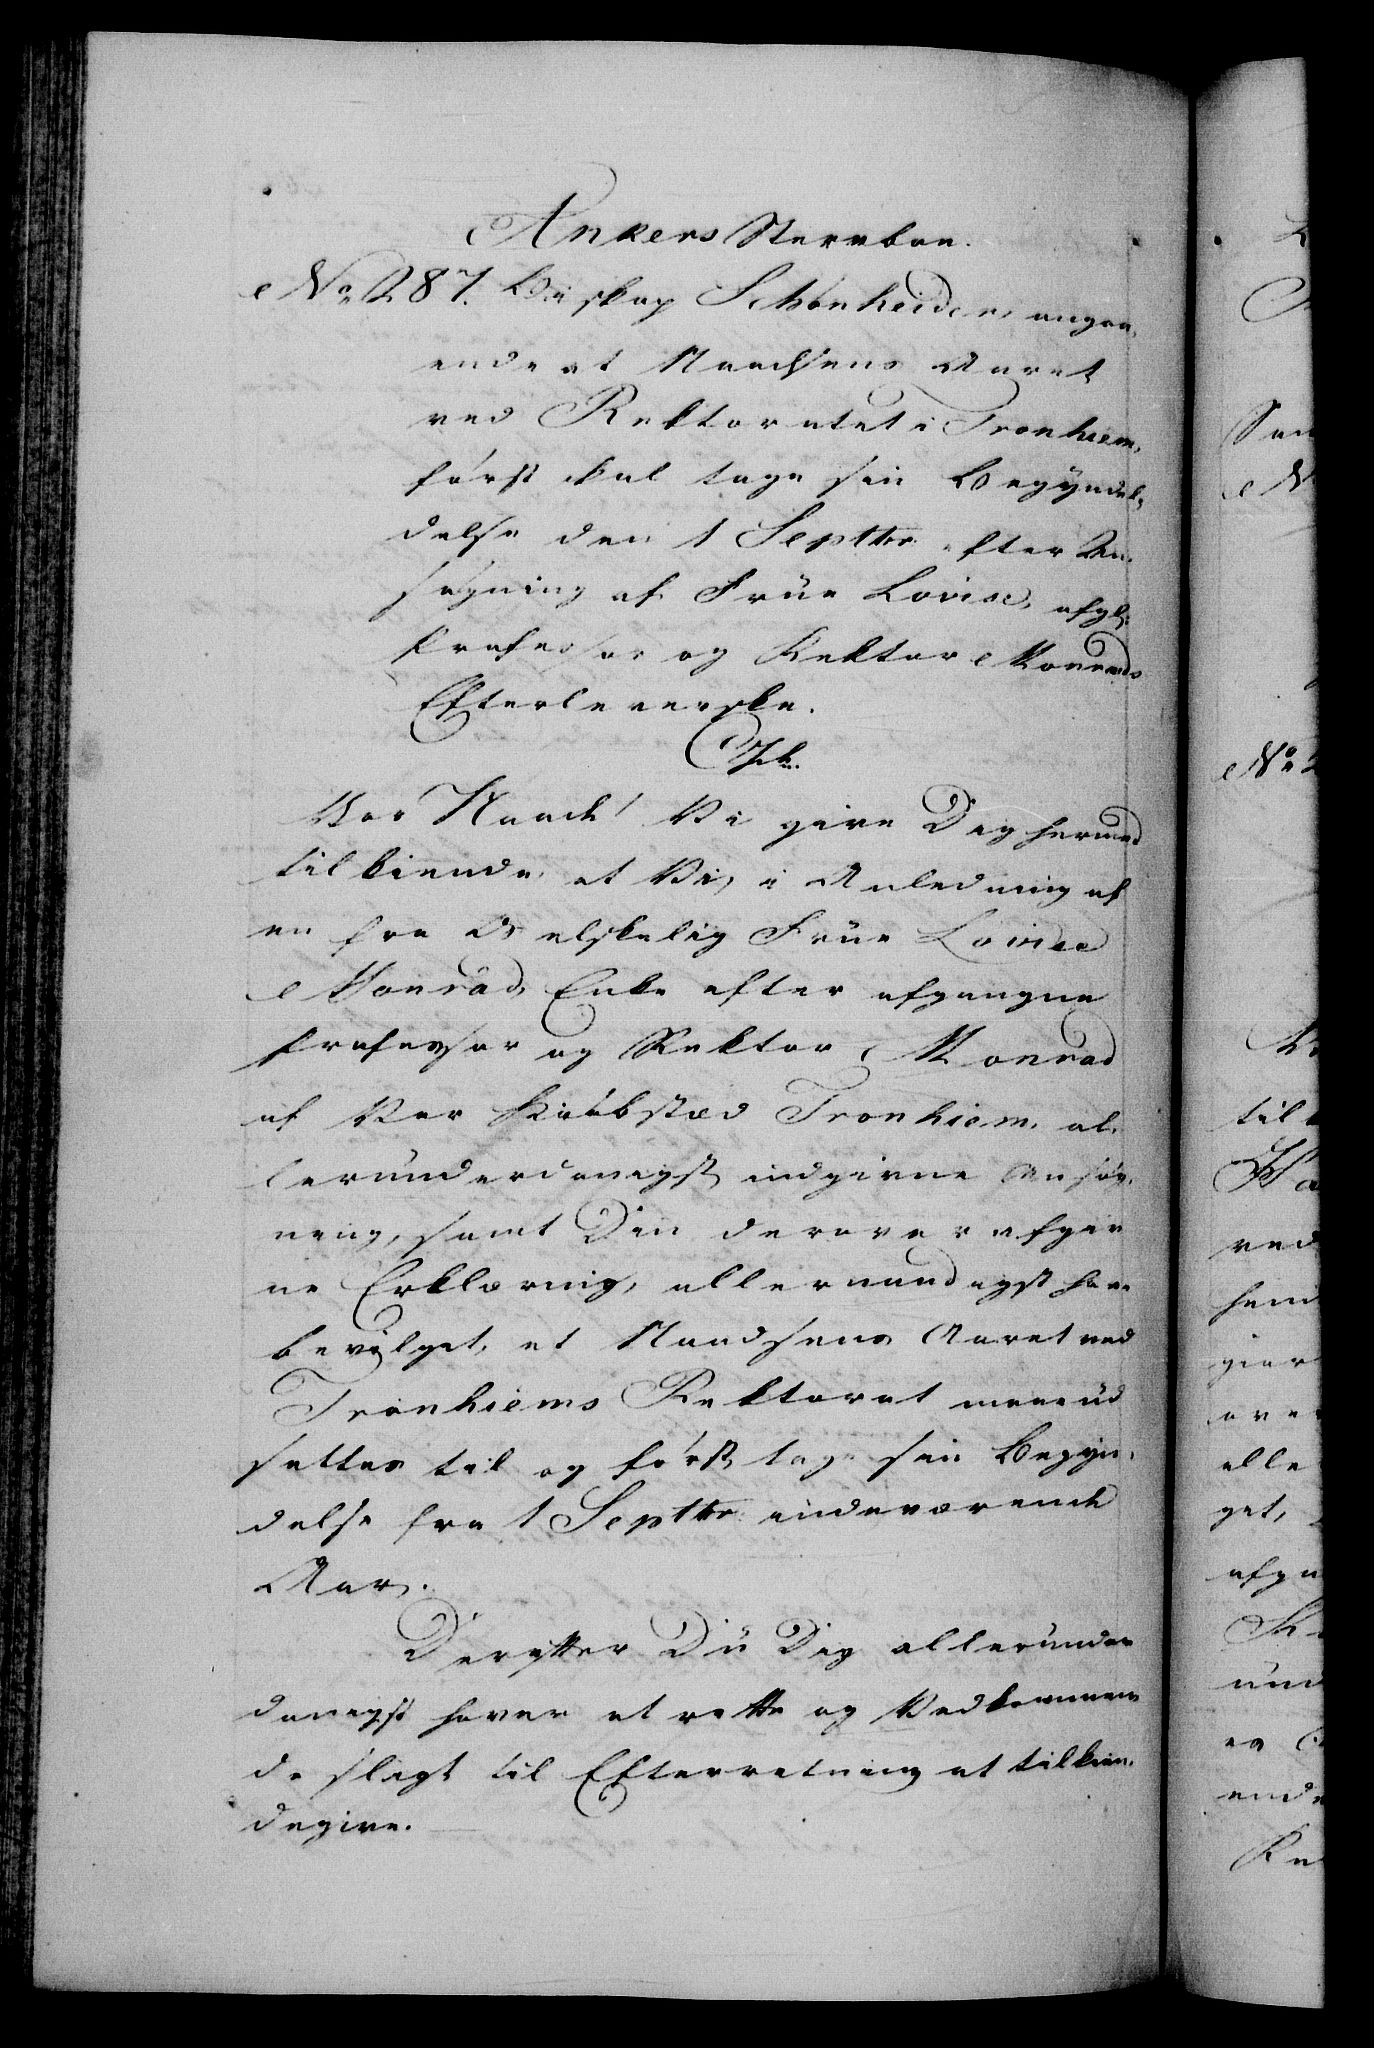 Ankers Stervboe.
No 287. Biskop Schönheider, angaa-
ende at Naadsens Aaret
ved Rektoratet i Tronhiem,
först skal tage sin Begyndel-
delse den 1 Septbr efter An-
sögning af Frue Lovise, afgl:
Professor og Rektor Monrads
Efterleverske.
Vor Naade! Vi give Dig hermed
tilkiende, at Vi, i Anledning af
en fra Os elskelig Frue Lovise
Monrad, Enke efter afgangne
Professor og Rektor Monrad
af Vor Kiöbstæd Tronhiem, al-
lerunderdanigst indgivne Ansög-
ning, samt Din derover afgiv
ne Erklæring, allernaadigst have
bevilget, at Naadsens Aaret ved
Tronhiems Rektorat maae ud
settes til og först tage sin Begyn-
delse fra 1 Septbr indeværende
Aar.
Derefter Du Dig allerunder
danigst haver at rette og Vedkommen
de sligt til Efterretning at tilkien-
degive.